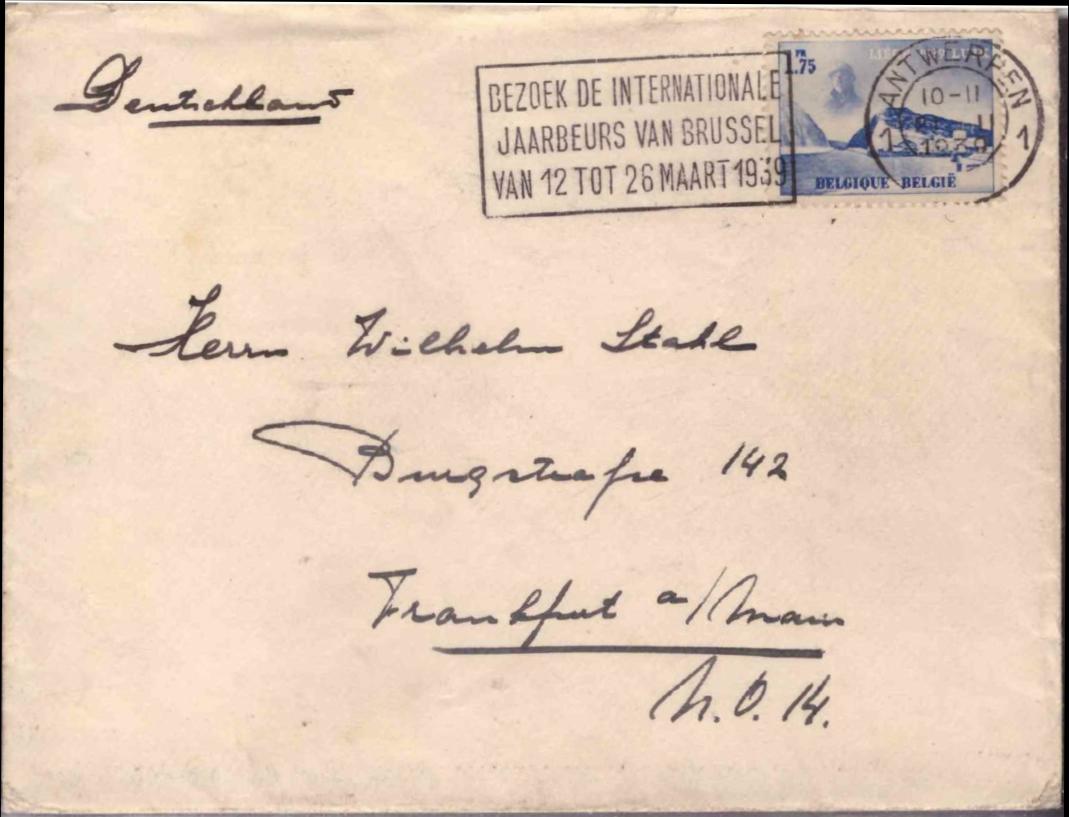 Deutschland
BEZOEK DE INTERNATIONALE
JAARBEURS VAN BRUSSEL
VAN 12 TOT 26 MAART 1939
FR
1.75
BELGIQUE BELGIË
ANTWERPEN
1 1
10-11
II
1939
Herrn Wilhelm Stahl
Burgstraße 142
Frankfurt a/Main
N.O. 14.